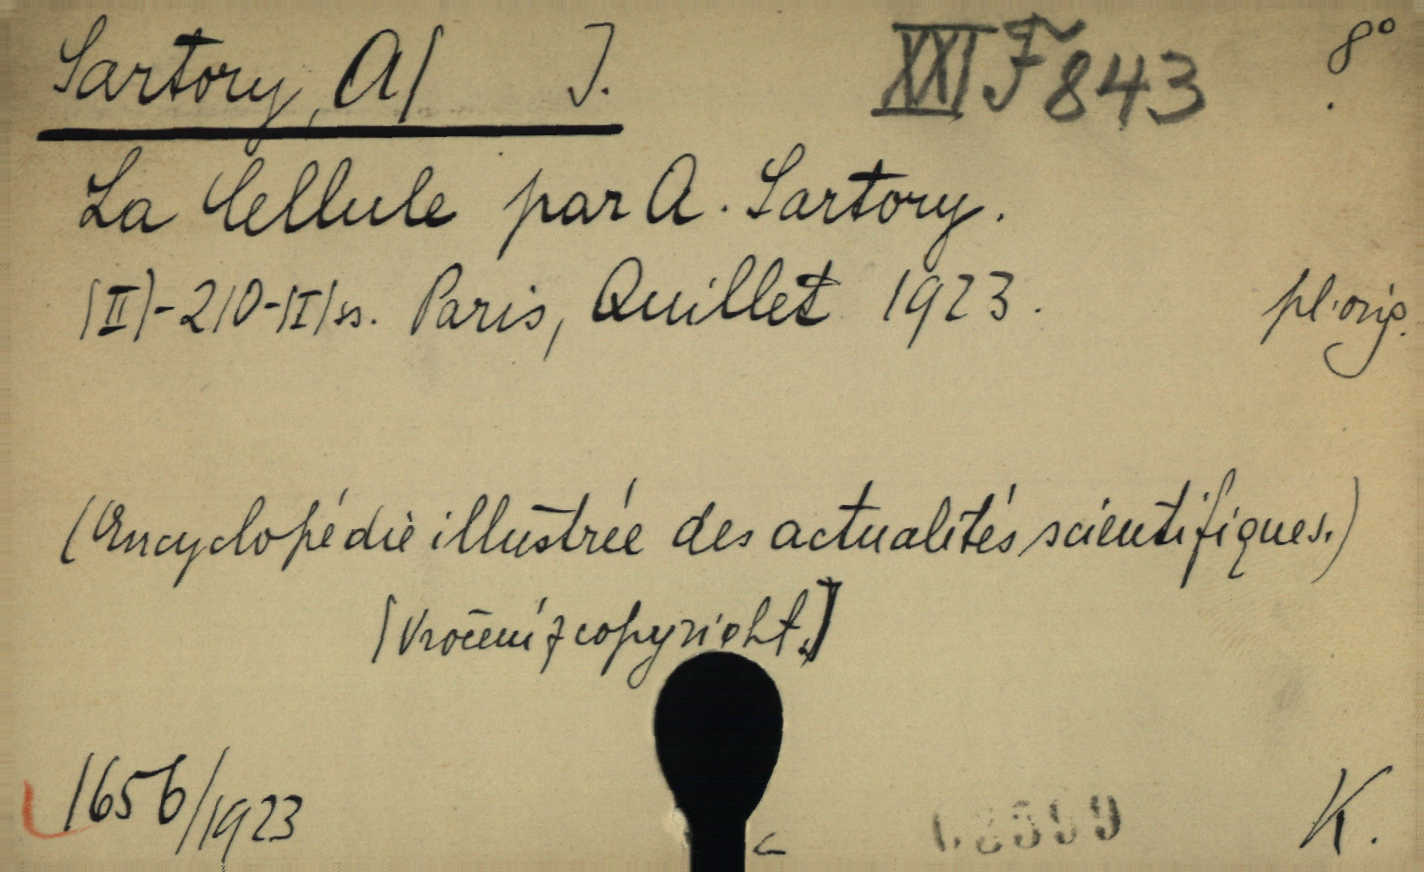 Sartory, A/ J. XXI F 843 8°
La Cellule par A. Sartory.
(II)-210-(I) ss. Paris, Quillet 1923. pl. orig.
(Encyclopédie illustrée des actualités scientifiques.)
[Vročení z copyright.]
1656/1923 K.